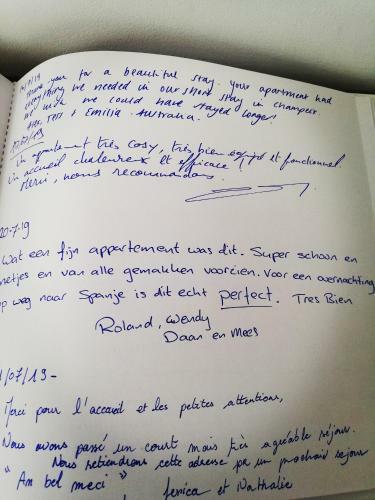 you for a beautiful stay. Your apartment had
everything we needed in our short stay in
we could have stayed longer!
Tess & Emilia. Australia.
Un appartement très cosy, très bien équipé et fonctionnel.
Un accueil chaleureux et efficace !
Merci, nous recommandons.
20-7-19
Wat een fijn appartement was dit. Super schoon en
netjes en van alle gemakken voorzien. Voor een overnachting
op weg naar Spanje is dit echt perfect. Tres Bien
Roland, Wendy
Daan en Mees
/07/19-
Merci pour l'accueil et les petites attentions,
Nous avons passé un court mais très agréable séjour.
Nous retiendrons cette adresse pr un prochain séjour
" Am bel meci "
Jessica et Nathalie